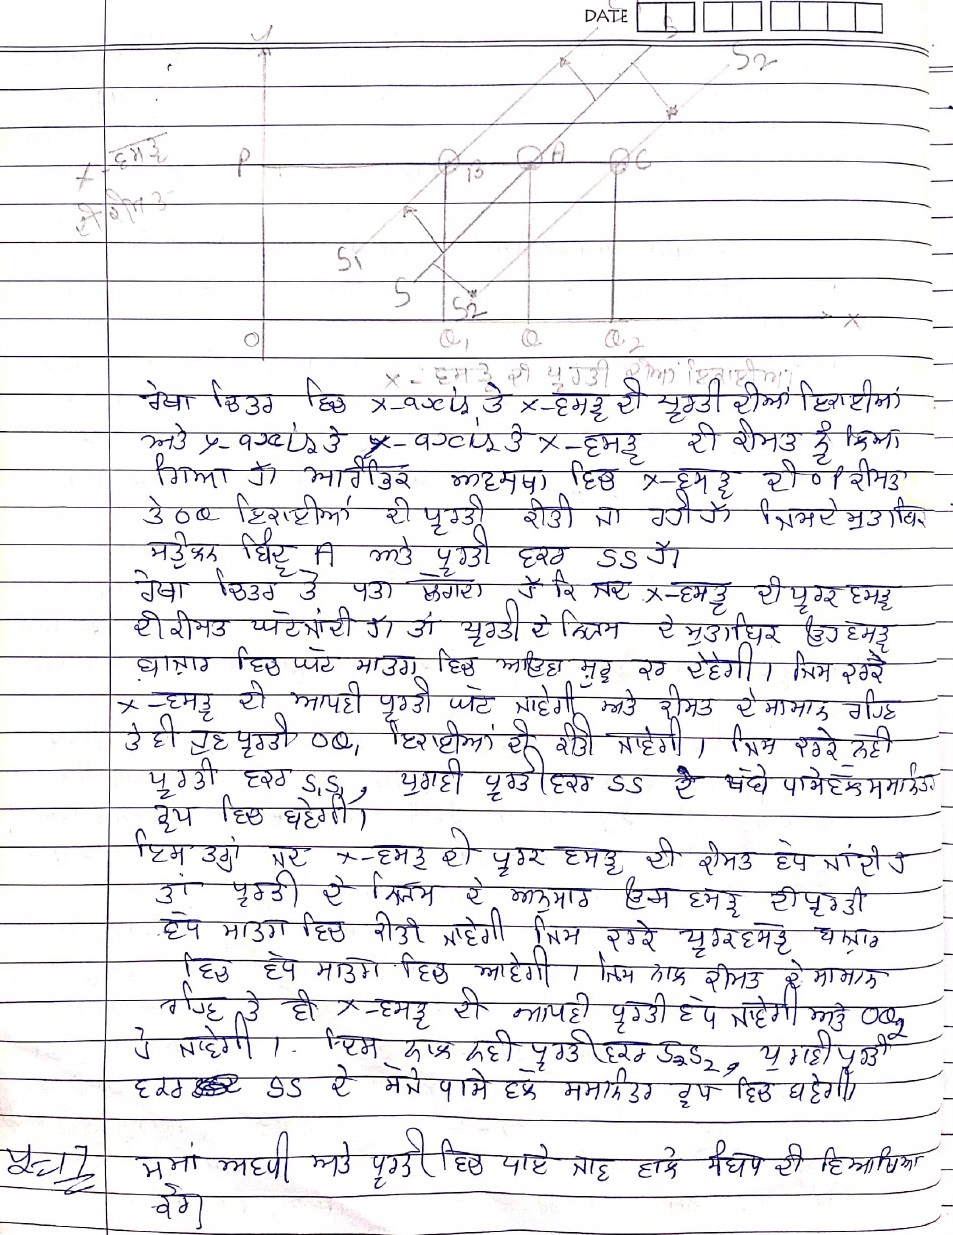 DATE
y
S2
P
B
A
C
x-ਵਸਤੂ
ਦੀ ਕੀਮਤ
S1
S
S2
O
Q1
Q
Q2
x
x-ਵਸਤੂ ਦੀ ਪੂਰਤੀ ਦੀਆਂ ਇਕਾਈਆਂ
ਰੇਖਾ ਚਿਤਰ ਵਿਚ x-axis ਤੇ x-ਵਸਤੂ ਦੀ ਪੂਰਤੀ ਦੀਆਂ ਇਕਾਈਆਂ
ਅਤੇ y-axis ਤੇ x-axis ਤੇ x-ਵਸਤੂ ਦੀ ਕੀਮਤ ਨੂੰ ਲਿਆ
ਗਿਆ ਹੈ। ਆਰੰਭਿਕ ਅਵਸਥਾ ਵਿਚ x-ਵਸਤੂ ਦੀ OP ਕੀਮਤ
ਤੇ OQ ਇਕਾਈਆਂ ਦੀ ਪੂਰਤੀ ਕੀਤੀ ਜਾ ਰਹੀ ਹੈ। ਜਿਸਦੇ ਮੁਤਾਬਿਕ
ਸਤੁੰਲਨ ਬਿੰਦੂ A ਅਤੇ ਪੂਰਤੀ ਵਕਰ SS ਹੈ।
ਰੇਖਾ ਚਿਤਰ ਤੋਂ ਪਤਾ ਲੱਗਦਾ ਹੈ ਕਿ ਜਦ x-ਵਸਤੂ ਦੀ ਪੂਰਕ ਵਸਤੂ
ਦੀ ਕੀਮਤ ਘੱਟ ਜਾਂਦੀ ਹੈ। ਤਾਂ ਪੂਰਤੀ ਦੇ ਨਿਯਮ ਦੇ ਮੁਤਾਬਿਕ ਉਹ ਵਸਤੂ
ਬਾਜ਼ਾਰ ਵਿਚ ਘੱਟ ਮਾਤਰਾ ਵਿਚ ਆਉਣਾ ਸ਼ੁਰੂ ਕਰ ਦੇਵੇਗੀ। ਜਿਸ ਕਰਕੇ
x-ਵਸਤੂ ਦੀ ਆਪਣੀ ਪੂਰਤੀ ਘੱਟ ਜਾਵੇਗੀ ਅਤੇ ਕੀਮਤ ਦੇ ਸਾਮਾਨ ਰਹਿਣ
ਤੇ ਵੀ ਹੁਣ ਪੂਰਤੀ OQ1 ਇਕਾਈਆਂ ਦੀ ਕੀਤੀ ਜਾਵੇਗੀ। ਜਿਸ ਕਰਕੇ ਨਵੀ
ਪੂਰਤੀ ਵਕਰ S1S1, ਪੁਰਾਣੀ ਪੂਰਤੀ ਵਕਰ SS ਦੇ ਖੱਬੇ ਪਾਸੇ ਵੱਲ ਸਮਾਨੰਤਰ
ਰੂਪ ਵਿਚ ਬਣੇਗੀ।
ਇਸ ਤਰ੍ਹਾਂ ਜਦ x-ਵਸਤੂ ਦੀ ਪੂਰਕ ਵਸਤੂ ਦੀ ਕੀਮਤ ਵੱਧ ਜਾਂਦੀ ਹੈ
ਤਾਂ ਪੂਰਤੀ ਦੇ ਨਿਯਮ ਦੇ ਅਨੁਸਾਰ ਉਸ ਵਸਤੂ ਦੀ ਪੂਰਤੀ
ਵੱਧ ਮਾਤਰਾ ਵਿਚ ਕੀਤੀ ਜਾਵੇਗੀ ਜਿਸ ਕਰਕੇ ਪੂਰਕ ਵਸਤੂ ਬਾਜ਼ਾਰ
ਵਿਚ ਵੱਧ ਮਾਤਰਾ ਵਿਚ ਆਵੇਗੀ। ਜਿਸ ਨਾਲ ਕੀਮਤ ਦੇ ਸਾਮਾਨ
ਰਹਿਣ ਤੇ ਵੀ x-ਵਸਤੂ ਦੀ ਆਪਣੀ ਪੂਰਤੀ ਵੱਧ ਜਾਵੇਗੀ ਅਤੇ OQ2
ਹੋ ਜਾਵੇਗੀ। ਇਸ ਨਾਲ ਨਵੀ ਪੂਰਤੀ ਵਕਰ S2S2, ਪੁਰਾਣੀ ਪੂਰਤੀ
ਵਕਰ SS ਦੇ ਸੱਜੇ ਪਾਸੇ ਵੱਲ ਸਮਾਨੰਤਰ ਰੂਪ ਵਿਚ ਬਣੇਗੀ।
ਸਮਾਂ ਅਵਧੀ ਅਤੇ ਪੂਰਤੀ ਵਿਚ ਪਾਏ ਜਾਣ ਵਾਲੇ ਸੰਬੰਧ ਦੀ ਵਿਆਖਿਆ
ਕਰੋ।